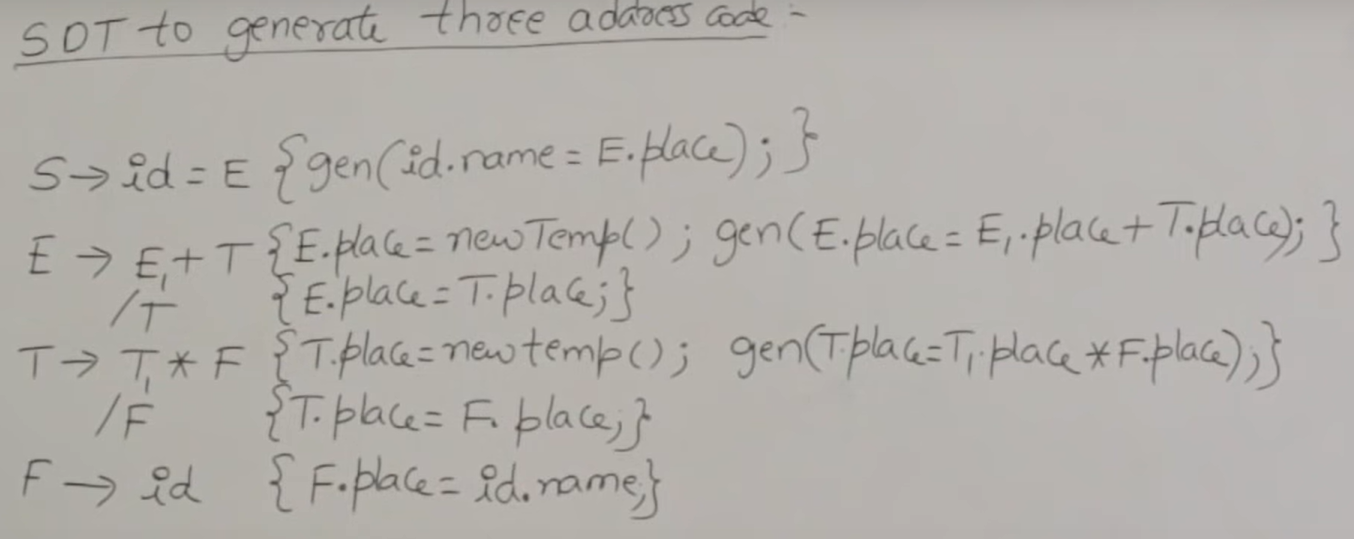 SDT to generate three address code :-
S → id = E {gen(id.name = E.place);}
E → E₁ + T {E.place = newTemp(); gen(E.place = E₁.place + T.place);}
/T {E.place = T.place;}
T → T₁ * F {T.place = newtemp(); gen(T.place = T₁.place * F.place);}
/F {T.place = F.place;}
F → id {F.place = id.name;}